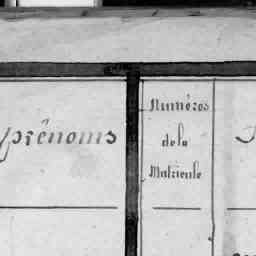 prénoms
Numéros
de la
Matricule